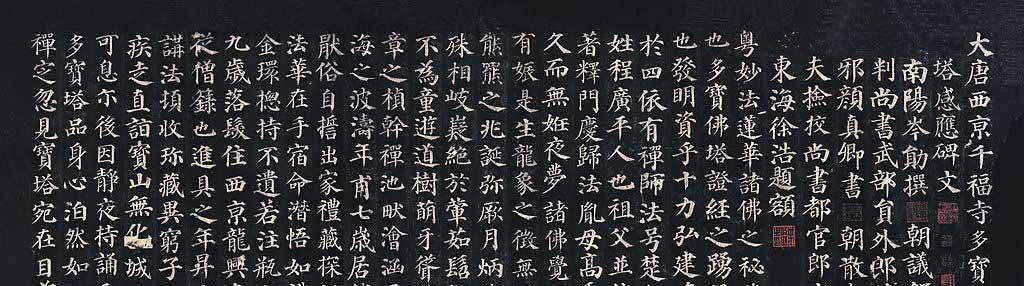 大唐西京千福寺多寶
塔感應碑文
南陽岑勛撰 朝議
判尚書武部員外郎
邪顏真卿書 朝散
夫撿挍尚書都官郎
東海徐浩題額
粵妙法蓮華諸佛之秘
也多寶佛塔證經之踴
也發明資乎十力弘建
於四依有禪師法号楚
姓程廣平人也祖父並
著釋門慶歸法胤母高
久而無妊夜夢諸佛覺
有娠是生龍象之徵無
熊羆之兆誕弥厥月炳
殊相岐嶷絶於葷茹髫
不為童遊道樹萌牙聳
章之楨幹禪池畎澮涵
海之波濤年甫七歲居
猒俗自誓出家禮藏探
法華在手宿命潛悟如
金環揔持不遺若注瓶
九歲落髮住西京龍興
從僧籙也進具之年昇
講法頃收珎藏異窮子
疾走直詣寶山無化城
可息尓後因静夜持誦
多寶塔品身心泊然如
禪定忽見寶塔宛在目